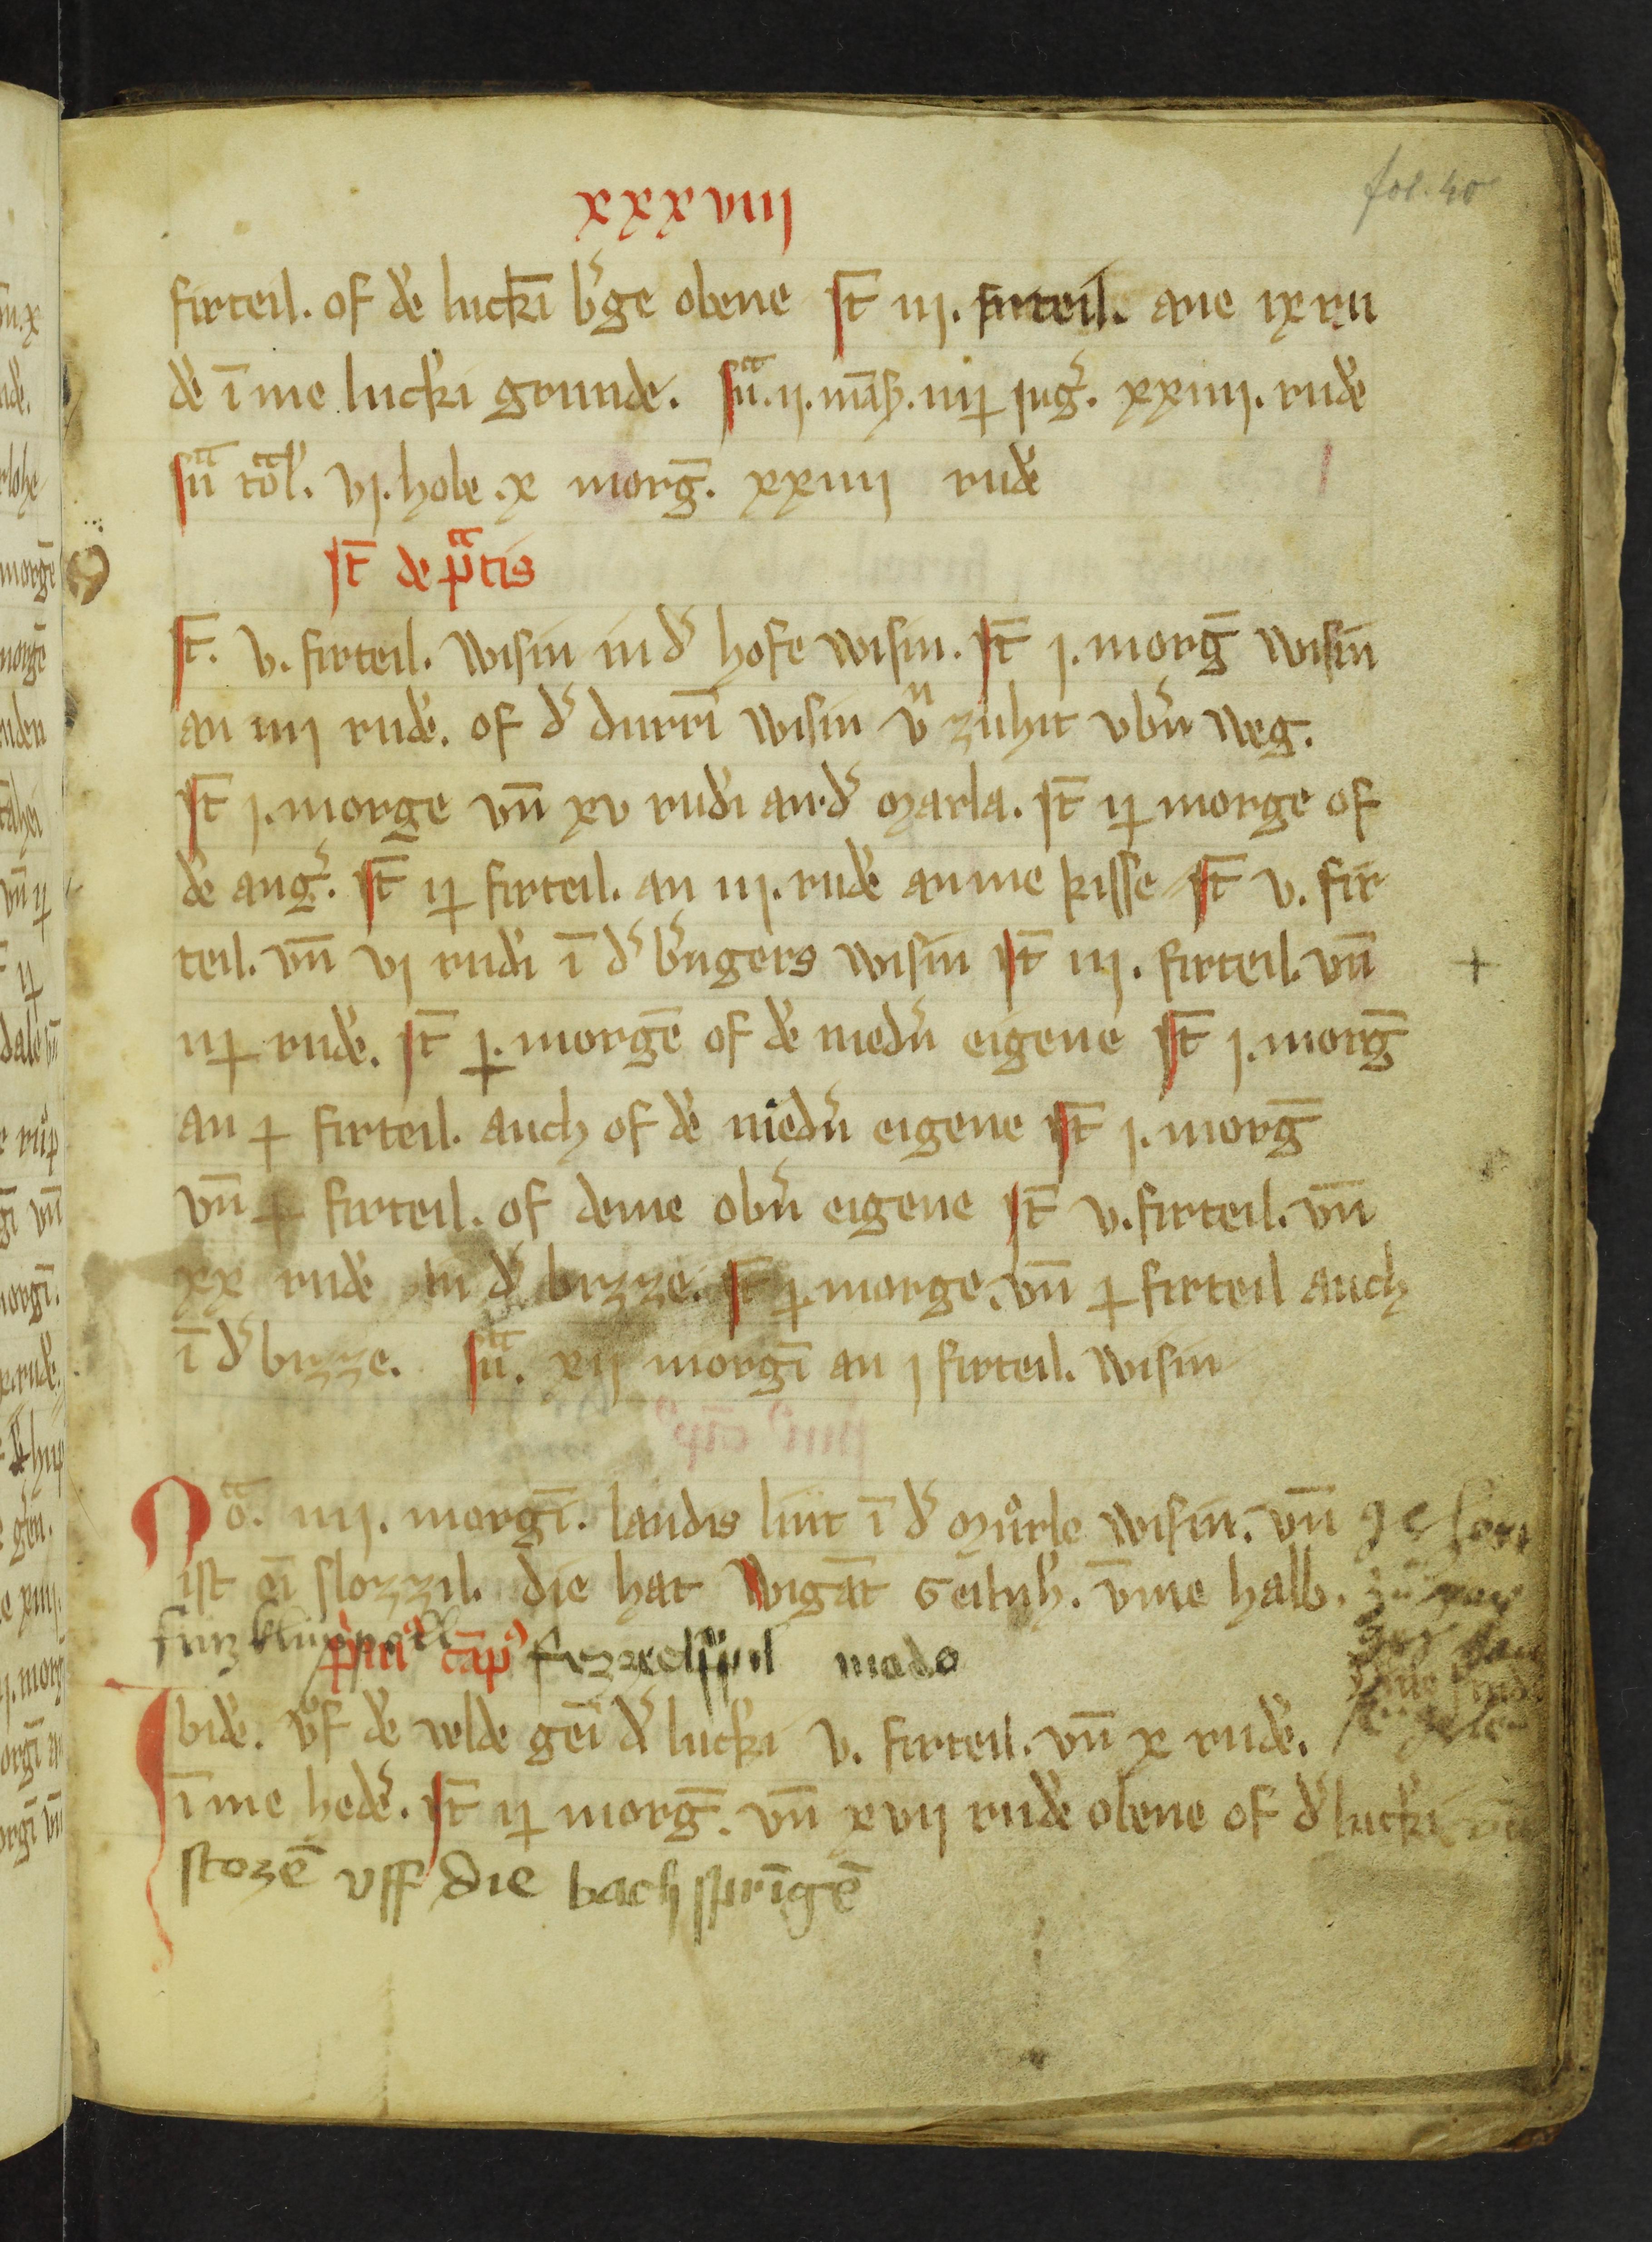 xxxviiij
fol. 40
firteil. of dē luckī b̾ge obene st̄ iij. firteil. ane ix ru
dē īme lucki grunde. sūᵃ. ij. māß. iiij iug̾. xxiiij. rudē
sūᵃ tōl. vj. hobe. x morḡ. xxiiij rudē
st̄ de pᵃtis
st̄. v. firteil. wisin in d̾ hofe wisin. st̄ j. morḡ wisin
an iiij rudē. of d̾ durrī wisin vn̄ zuhit vb̾n weg.
st̄ j. morge vn̄ xv rudi an d̾ marla. st̄ ij morge of
dē ang̾. st̄ ij firteil. an iij. rudē anme kisse st̄ v. fir
teil. vn̄ vj rudi ī d̾ b̾ngers wisin st̄ iij. firteil. vn̄
ij rudē. st̄ j. morgē of dē nied̾n eigene st̄ j. morḡ
an j firteil. auch of dē nied̾n eigene st̄ j. morḡ
vn̄ j firteil. of deme ob̾n eigene st̄ v. firteil. vn̄
xx rudē in d̾ bizze. st̄ j morge. vn̄ j firteil auch
ī d̾ bizze. sūᵃ. xij morgī an j firteil. wisin
Noᵃ. iiij. morgī. landis liit ī d̾ můrle wisin. vn̄
ist eī slozzil. die hat wigāt Geilnh̾. v̄me halb.
p̾muꝰ cāpꝰ modo
Ibidē. vf dē velde geī d̾ lucki v. firteil. vn̄ x rudē.
īme hed̾. st̄ ij morḡ. vn̄ xvij rudē obene of d̾ lucki vn̄
stozē vff die bach sprīgē